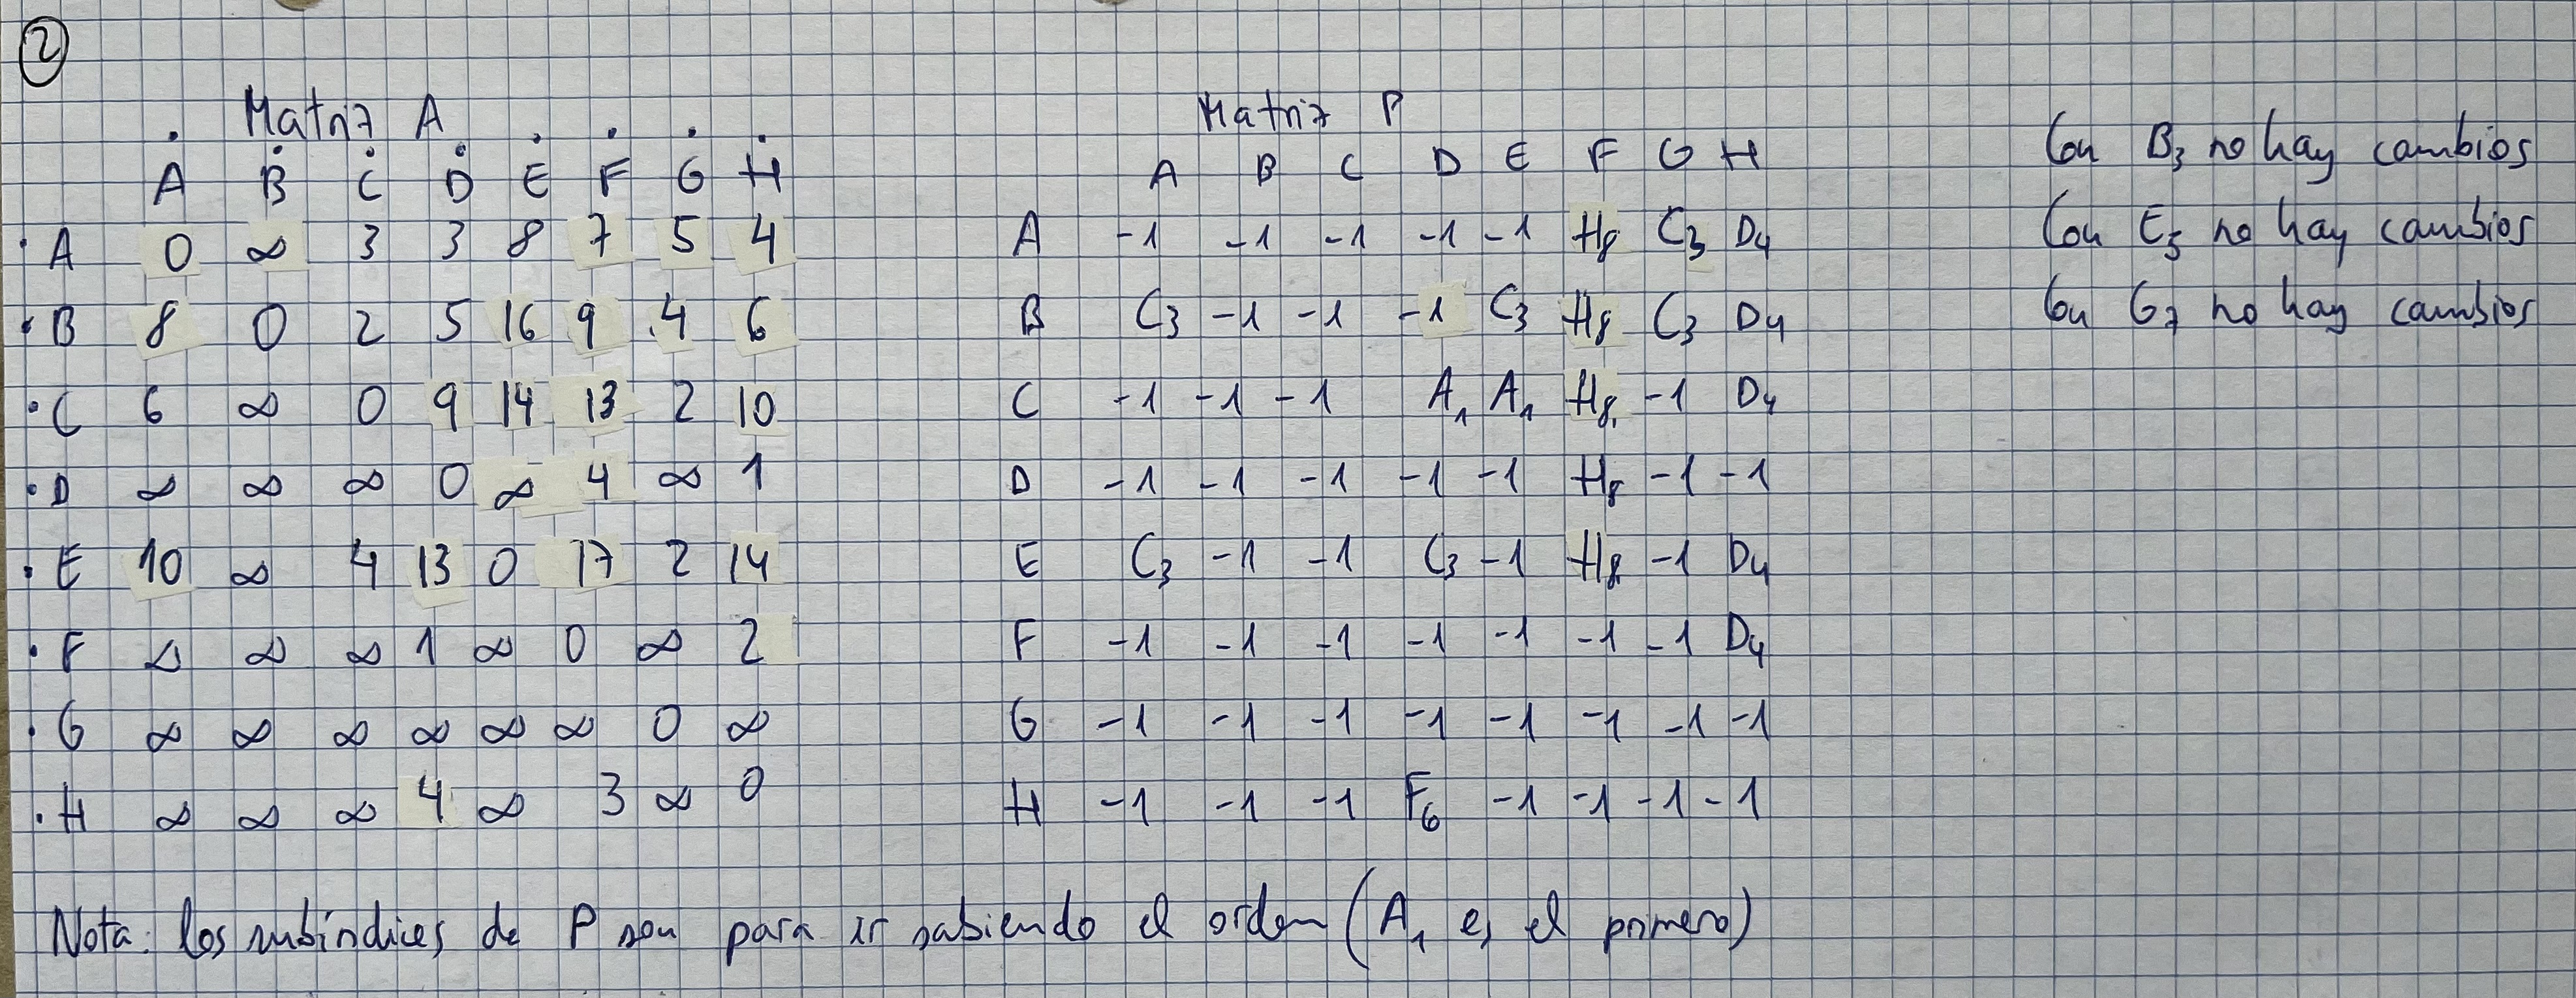 2
Matriz A
A B C D E F G H
A 0 ∞ 3 3 8 7 5 4
B 8 0 2 5 16 9 4 6
C 6 ∞ 0 9 14 13 2 10
D ∞ ∞ ∞ 0 ∞ 4 ∞ 1
E 10 ∞ 4 13 0 17 2 14
F ∞ ∞ ∞ 1 ∞ 0 ∞ 2
G ∞ ∞ ∞ ∞ ∞ ∞ 0 ∞
H ∞ ∞ ∞ 4 ∞ 3 ∞ 0
Matriz P
A B C D E F G H
A -1 -1 -1 -1 -1 H₈ C₃ D₄
B C₃ -1 -1 -1 C₃ H₈ C₃ D₄
C -1 -1 -1 A₁ A₁ H₈ -1 D₄
D -1 -1 -1 -1 -1 H₈ -1 -1
E C₃ -1 -1 C₃ -1 H₈ -1 D₄
F -1 -1 -1 -1 -1 -1 -1 D₄
G -1 -1 -1 -1 -1 -1 -1 -1
H -1 -1 -1 F₆ -1 -1 -1 -1
Con B₃ no hay cambios
Con E₅ no hay cambios
Con G₇ no hay cambios
Nota: los subíndices de P son para ir sabiendo el orden (A₁ es el primero)